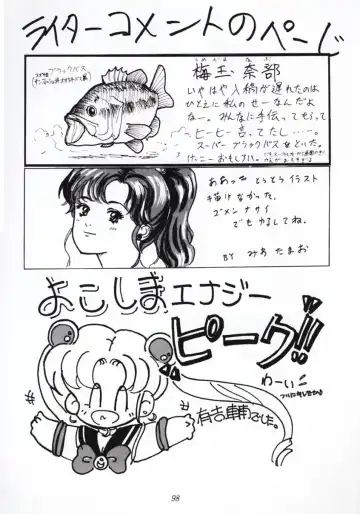 ライターコメントのページ
ブラックバス
梅玉奈部
いやはや入稿が遅れたのは
ひとえに私のせーなんだよ
なー。みんなに手伝ってもらって
ヒーヒー言ってたし・・・・。
スーパーブラックバス
けっこーおもしろい。
ああっ とうとうイラスト
描けなかった。
ズメンナサイ
でもゆるしてね。
BY みあ たまお
よこしまエナジー
ピーク!!
わーい
有吉
でした。
98